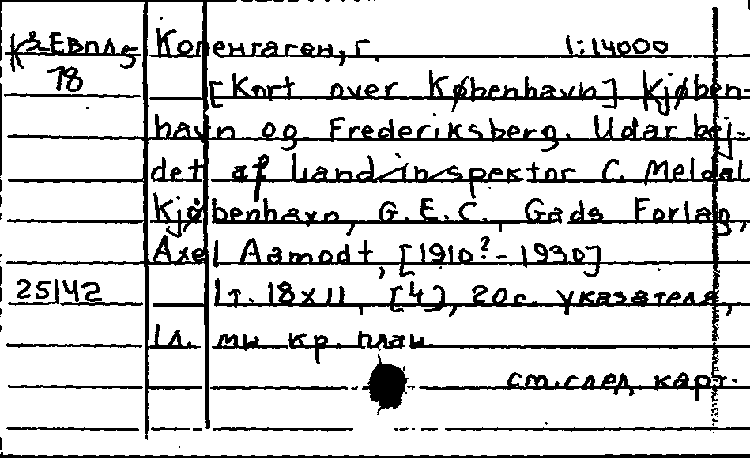 К3-Евпл5 Копенгаген, г. 1:14000
78 [Kort over København] Kjøben-
havn og Frederiksberg. Udarbej-
det af Landinspektor C. Meldal
Kjøbenhavn, G.E.C. Gads Forlag,
Axel Aamodt, [1910?-1930]
25142 1т. 18x11, [4], 20с. указателя,
1л. мн кр. план
см. след. карт.